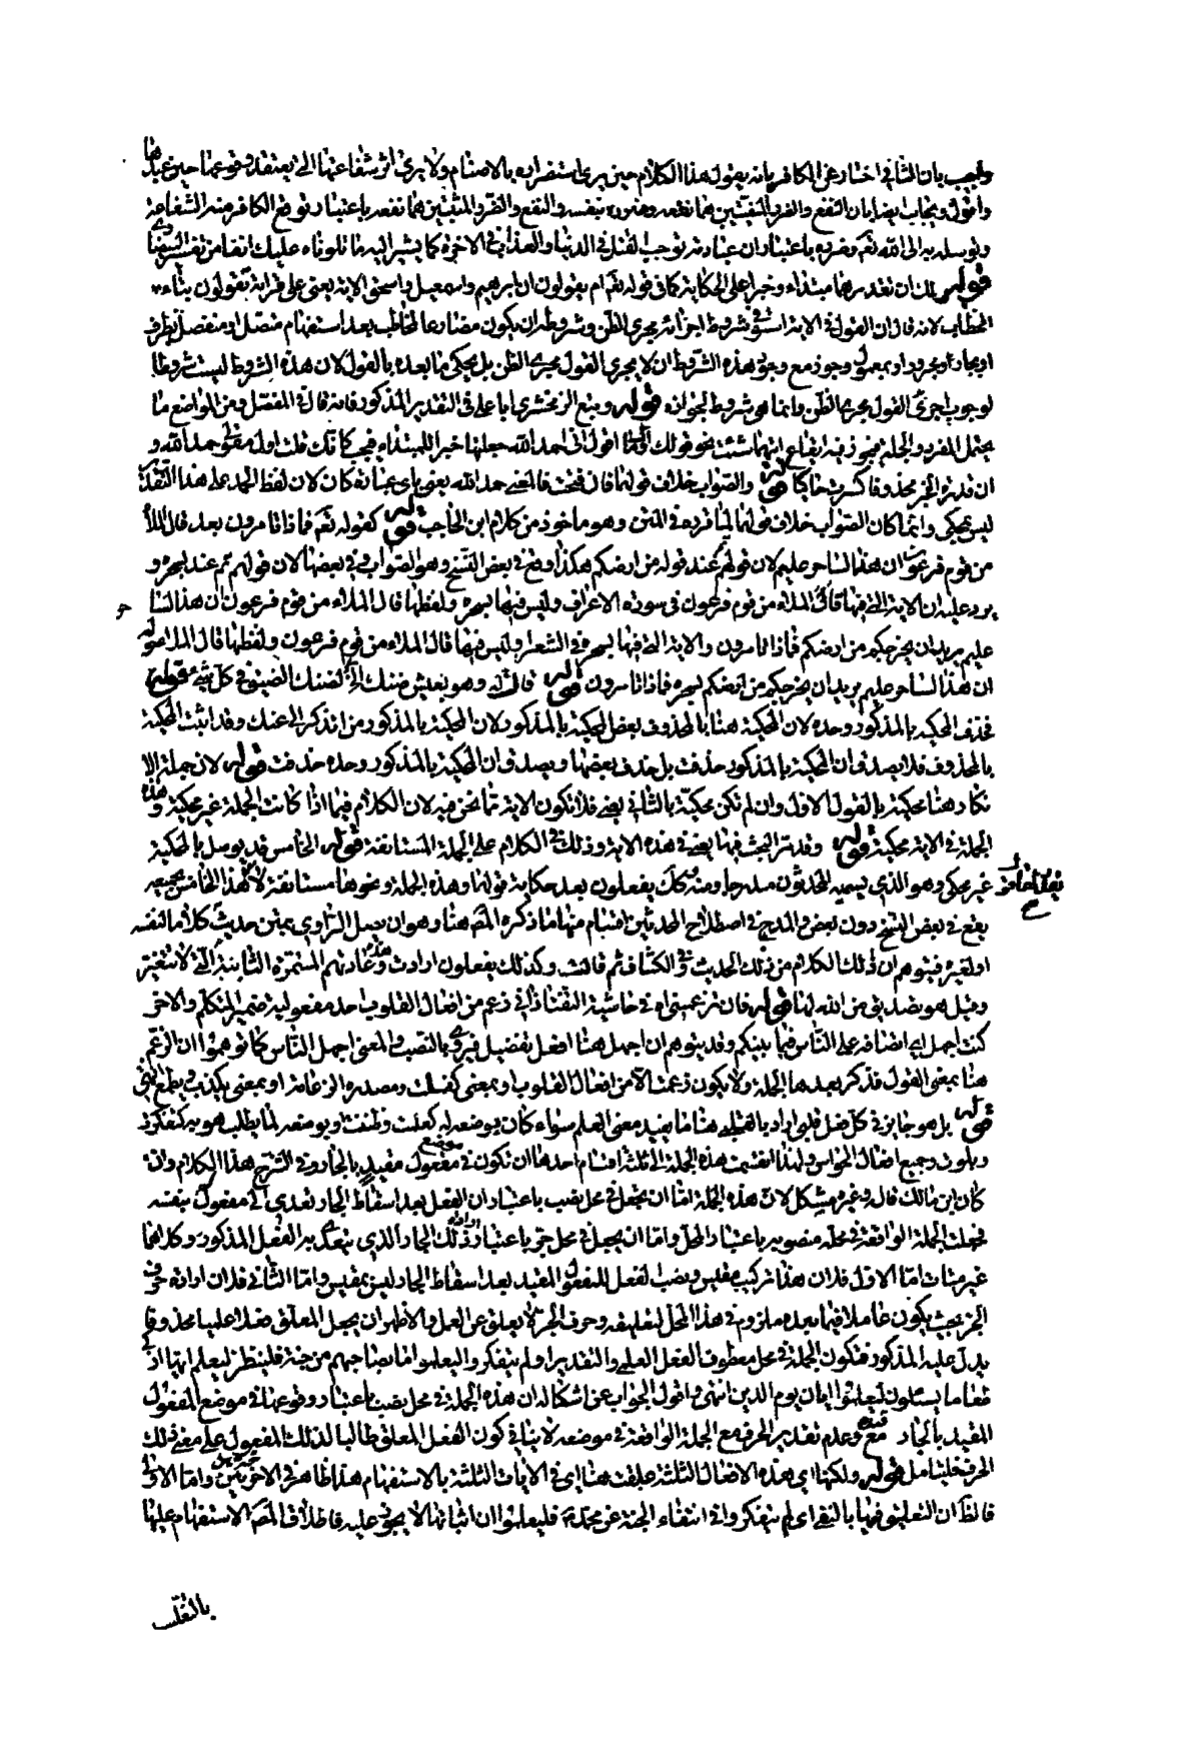 واجيب بان الثانى اخبار عن الكافر بانه يقول هذا الكلام حين يرى استضراره بالاصنام ولا يرى اثر شفاعتها التى يعتقد وقوعها حين عبدها
واقول ويجاب ايضا بان النفع والضر المنفيين هما نفعه وضره بنفسه والنفع والضر المثبتين هما نفعه باعتبار توقع الكافر منه الشفاعة
وتوسله به الى الله تعالى وضره باعتبار ان عبادته توجب القتل فى الدنيا والعذاب فى الاخرة كما يشير اليه ما تلوناه عليك انفا من تفسير البيضاوى
قوله لك ان تقدرهما مبتداء وخبرا على الحكاية كما فى قوله تعالى ام يقولون ان ابرهيم واسمعيل واسحق الاية يعنى على قرائة تقولون بتاء
الخطاب لانه قال ان القول فى الاية استوفى شروط اجرائه مجرى الظن وشروطه ان يكون مضارعا لمخاطب بعد استفهام متصل او منفصل بظرف
او بجار ومجرور او بمعمول وجوز مع وجود هذه الشروط ان لا يجرى القول مجرى الظن بل يحكى ما بعده بالقول لان هذه الشروط ليست شروطا
لوجوب اجرى القول مجرى الظن وانما هى شروط لجوازه قوله ومنع الزمخشرى ابا على فى التقدير المذكور فانه قال فى المفصل ومن المواضع ما
يحتمل المفرد والجملة فيجوز فيه ايقاع ايتهما شئت نحو قولك اول ما اقول انى احمد الله جعلتها خبرا للمبتداء فيجب كانك قلت اول مقولى حمد الله و
ان قدرت الخبر محذوفا كسرت حاكيا قوله والصواب خلاف قولهما قال فتحت فالمعنى حمد الله يعنى باى عبارة كان لان لفظ الحمد على هذا التقدير
ليس بمحكى وانما كان الصواب خلاف قولهما لما قرره فى المتن وهو ماخوذ من كلام ابن الحاجب قوله كقوله تعالى فماذا تامرون بعد قال الملأ
من قوم فرعون ان هذا لساحر عليم لان قولهم تم عند قوله من ارضكم هكذا وقع فى بعض النسخ وهو الصواب وفى بعضها لان قولهم تم عند بسحره و
يرد عليه ان الاية التى فيها قال الملاء من قوم فرعون فى سورة الاعراف وليس فيها بسحره ولفظها قال الملاء من قوم فرعون ان هذا لسا
حر
عليم يريد ان يخرجكم من ارضكم فماذا تامرون والاية التى فيها بسحره فى الشعراء وليس فيها قال الملاء من قوم فرعون ولفظها قال للملاء حوله
ان هذا لساحر عليم يريد ان يخرجكم من ارضكم بسحره فماذا تامرون قوله قال له وهو بعيش ضنك الخ الضنك الضيق فى كل شىء قوله
فحذف المحكية بالمذكور وحده لان المحكية هنا بالمحذوف بعض المحكية بالمذكور لان المحكية بالمذكور من اتذكر الى عنك وقد اثبت المحكية
بالمحذوف فلا يصدق ان المحكية بالمذكور حذفت بل حذف بعضها ويصدق ان المحكية بالمذكور وحده حذفت قوله لان جملة الا
نكار هنا محكية بالقول الاول وان لم تكن محكية بالثانى يعنى فلا تكون الاية مما نحن فيه لان الكلام فيما اذا كانت الجملة غير محكية وهذه
الجملة فى الاية محكية قوله وقد مر البحث فيها يعنى فى هذه الاية وذلك فى الكلام على الجملة المستانفة قوله الخامس قد يوصل بالمحكية
غير محكى وهو الذى يسميه المحدثون مدرجا ومنه وكذلك يفعلون بعد حكاية قولها وهذه الجملة ونحوها مستانفة لا محل لها هذا الخامس بجميعه
يقع فى بعض النسخ دون بعض والمدرج فى اصطلاح المحدثين اقسام منها ما ذكره المص هنا وهو ان يصل الراوى بمتن حديث كلاما لنفسه
او لغيره فيتوهم ان ذلك الكلام من ذلك الحديث وفى الكشاف ثم قالت وكذلك يفعلون ارادت وهذه عادتهم المستمرة الثابتة التى لا تتغير
وقيل هو تصديق من الله لها قوله فان تزعمينى اه فى حاشية التفتازانى زعم من افعال القلوب احد مفعوليه ضمير المتكلم والاخر
كنت اجهل اى اضافه على الناس فيما بينكم وقد يتوهم ان اجهل هنا افعل تفضيل فيروى بالنصب والمعنى اجهل الناس كما توهموا ان الزعم
هنا بمعنى القول فذكر بعدها الجملة ولا يكون زعمت الا من افعال القلوب او بمعنى كفلت ومصدره الزعامة او بمعنى يكذب ويطمع انتهى
قوله بل هو جايز فى كل فعل قلبى اراد بالقلبى هنا ما يفيد معنى العلم سواء كان بوضعه له كعلمت وظننت او بوضعه لما يطلب هو به كتفكرت
وبلوت وجميع افعال الحواس ولهذا انقسمت هذه الجملة الى ثلثة اقسام احدها ان تكون فى موضع مفعول مقيد بالجار وفى الشرح هذا الكلام وان
كان ابن مالك قاله وغيره مشكل لان هذه الجملة اما ان تجعل فى محل نصب باعتبار ان الفعل بعد اسقاط الجار تعدى الى مفعول بنفسه
فجعلت الجملة الواقعة فى محله منصوبه باعتبار المحل واما ان يجعل فى محل جر باعتبار ارادة ذلك الجار الذى يتعدى به الفعل المذكور وكلاهما
غير متات اما الاول فلان هذا تركيب مقيس ونصب الفعل للمفعول المقيد بعد اسقاط الجار ليس بمقيس واما الثانى فلان ارادة حرف
الجر بحيث يكون عاملا فيما بعده ملزوم فى هذا المحل لتعليقه وحرف الجر لا يعلق عن العمل والاظهر ان يجعل المعلق فعلا علميا محذوفا
يدل عليه المذكور فتكون الجملة فى محل معطوف الفعل العلمى والتقدير او لم يتفكروا ليعلموا ما بصاحبهم من جنة فلينظر ليعلم ايها ازكى
طعاما يسئلون ليعلموا ايان يوم الدين انتهى واقول الجواب عن اشكاله ان هذه الجملة فى محل نصب باعتبار وقوعها فى موضع المفعول
المقيد بالجار فيه وعدم تقدير الحرف مع الجملة الواقعة فى موضعه لا ينافى كون الفعل المعلق طالبا لذلك المفعول على معنى ذلك
الحرف فليتامل قوله ولكنها اى هذه الافعال الثلثة علقت هنا اى فى الايات الثلثة بالاستفهام هذا ظاهر فى الاخيرتين واما الاولى
فالظ ان التعليق فيها بالنفى اى لم يتفكروا فى انتفاء الجنة عن محمد ص فليعلموا ان اثباتها لا يجوز عليه فاطلاق المص الاستفهام عليها
بالتغليب